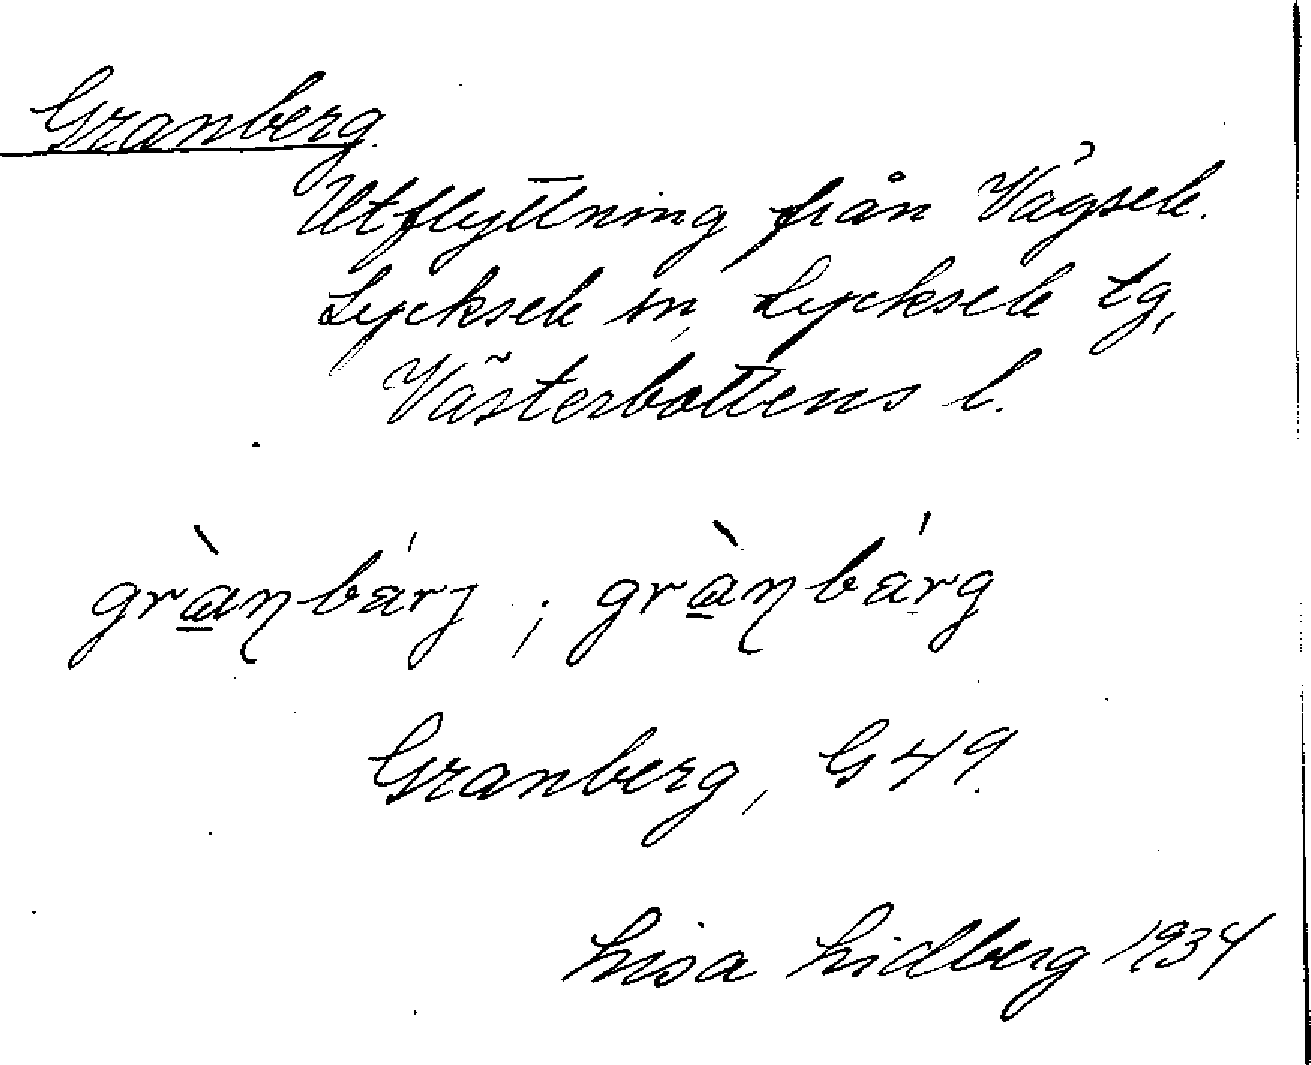 Granberg.
Utflyttning från Vägsele.
Lycksele sn, Lycksele tg,
Västerbottens l.
grànbárj ; grànbárg
Granberg, G 49.
Lisa Lidberg 1934